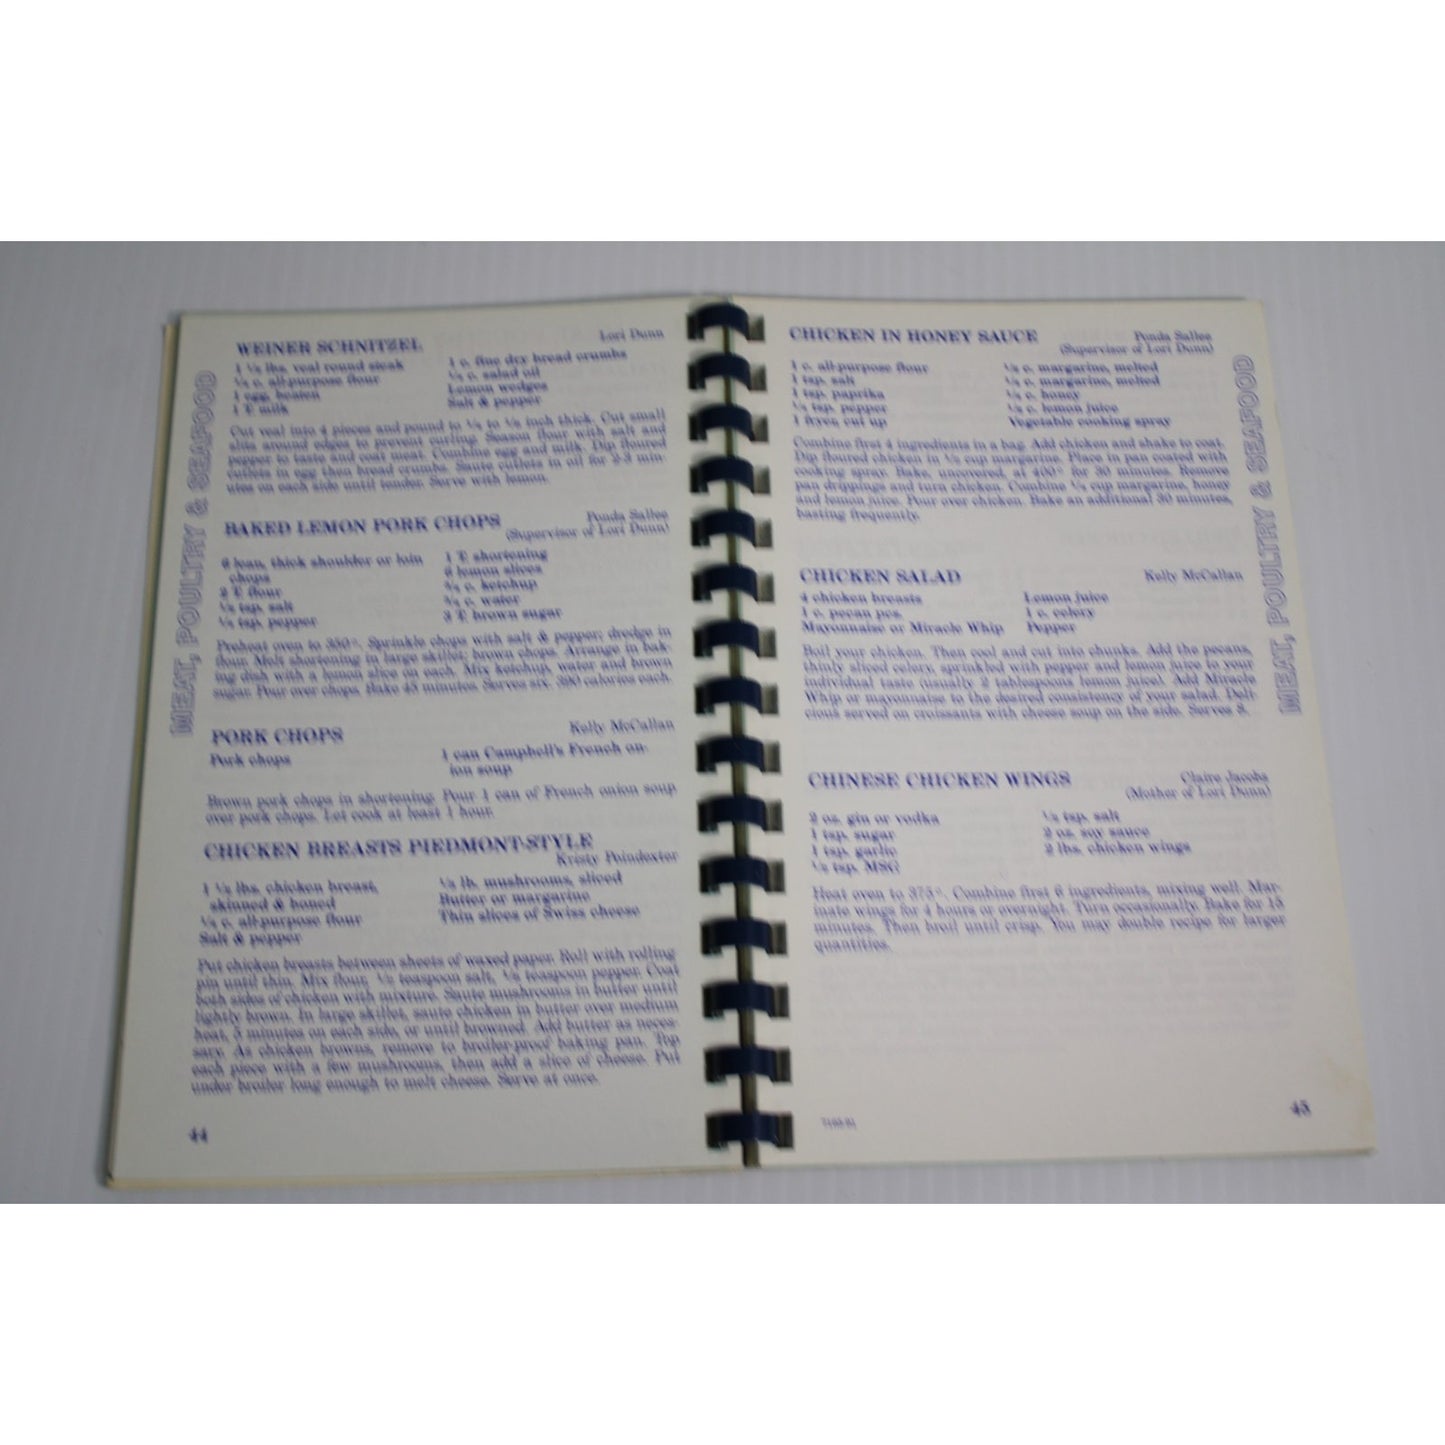 MEAT, POULTRY & SEAFOOD
WEINER SCHNITZEL
Lori Dunn
lbs. veal round steak
c. all-purpose flour
1 egg, beaten
1 T. milk
1 c. fine dry bread crumbs
c. salad oil
Lemon wedges
Salt & pepper
Cut veal into 4 pieces and pound to inch thick. Cut small
slits around edges to prevent curling. Season flour with salt and
pepper to taste and coat meat. Combine egg and milk. Dip floured
cutlets in egg then bread crumbs. Saute cutlets in oil for 2-3 min-
utes on each side until tender. Serve with lemon.
BAKED LEMON PORK CHOPS
Ponda Sallee
(Supervisor of Lori Dunn)
6 lean, thick shoulder or loin
chops
2 T. flour
tsp. salt
tsp. pepper
1 T. shortening
6 lemon slices
c. ketchup
c. water
3 T. brown sugar
Preheat oven to 350°. Sprinkle chops with salt & pepper; dredge in
flour. Melt shortening in large skillet; brown chops. Arrange in bak-
ing dish with a lemon slice on each. Mix ketchup, water and brown
sugar. Pour over chops. Bake 45 minutes. Serves six. calories each.
PORK CHOPS
Kelly McCallan
Pork chops
1 can Campbell's French on-
ion soup
Brown pork chops in shortening. Pour 1 can of French onion soup
over pork chops. Let cook at least 1 hour.
CHICKEN BREASTS PIEDMONT-STYLE
Kristy Poindexter
lbs. chicken breast,
skinned & boned
c. all-purpose flour
Salt & pepper
lb. mushrooms, sliced
Butter or margarine
Thin slices of Swiss cheese
Put chicken breasts between sheets of waxed paper. Roll with rolling
pin until thin. Mix flour, teaspoon salt, teaspoon pepper. Coat
both sides of chicken with mixture. Saute mushrooms in butter until
lightly brown. In large skillet, saute chicken in butter over medium
heat, 5 minutes on each side, or until browned. Add butter as neces-
sary. As chicken browns, remove to broiler-proof baking pan. Top
each piece with a few mushrooms, then add a slice of cheese. Put
under broiler long enough to melt cheese. Serve at once.
44
CHICKEN IN HONEY SAUCE
Ponda Sallee
(Supervisor of Lori Dunn)
1 c. all-purpose flour
1 tsp. salt
1 tsp. paprika
tsp. pepper
1 fryer, cut up
c. margarine, melted
c. margarine, melted
c. honey
c. lemon juice
Vegetable cooking spray
Combine first 4 ingredients in a bag. Add chicken and shake to coat.
Dip floured chicken in cup margarine. Place in pan coated with
cooking spray. Bake, uncovered, at 400° for 30 minutes. Remove
pan drippings and turn chicken. Combine cup margarine, honey
and lemon juice. Pour over chicken. Bake an additional 30 minutes,
basting frequently.
CHICKEN SALAD
Kelly McCallan
4 chicken breasts
1 c. pecan pcs.
Mayonnaise or Miracle Whip
Lemon juice
1 c. celery
Pepper
Boil your chicken. Then cool and cut into chunks. Add the pecans,
thinly sliced celery, sprinkled with pepper and lemon juice to your
individual taste (usually 2 tablespoons lemon juice). Add Miracle
Whip or mayonnaise to the desired consistency of your salad. Deli-
cious served on croissants with cheese soup on the side. Serves 8.
CHINESE CHICKEN WINGS
Claire Jacobs
(Mother of Lori Dunn)
2 oz. gin or vodka
1 tsp. sugar
1 tsp. garlic
tsp. MSG
tsp. salt
2 oz. soy sauce
2 lbs. chicken wings
Heat oven to 375°. Combine first 6 ingredients, mixing well. Mar-
inate wings for 4 hours or overnight. Turn occasionally. Bake for 15
minutes. Then broil until crisp. You may double recipe for larger
quantities.
45
MEAT, POULTRY & SEAFOOD